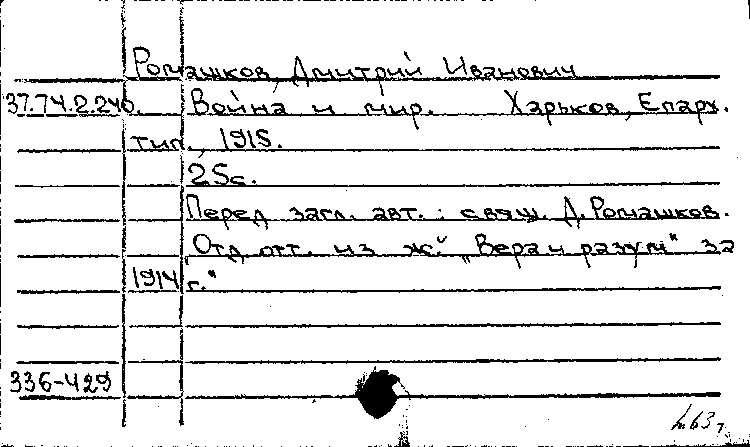 Ромашков, Дмитрий Иванович
37.74.2.246. Война и мир. Харьков, Епарх.
тип., 1915.
25с.
Перед загл. авт.: свящ. Д. Ромашков.
"Отд. отт. из ж. "Вера и разум" за
1914 г."
336-429